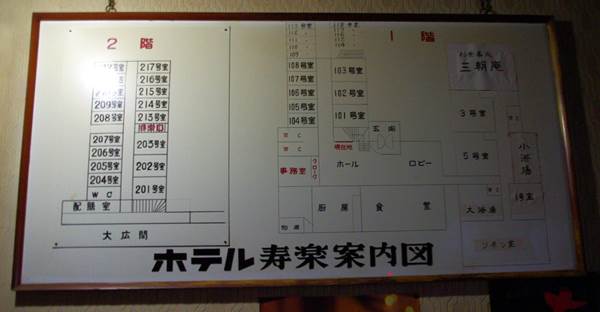 2階
217号室
216号室
215号室
214号室
213号室
非常口
203号室
202号室
201号室
209号室
208号室
207号室
206号室
205号室
204号室
WC
配膳室
大広間
1階
112号室
111
110
109
108号室
107号室
106号室
105号室
104号室
WC
WC
事務室
クローク
103号室
102号室
101号室
現在地
玄関
ホール
ロビー
厨房
食堂
三朝庵
3号室
5号室
小浴場
1号室
WC
大浴場
リネン室
ホテル寿楽案内図